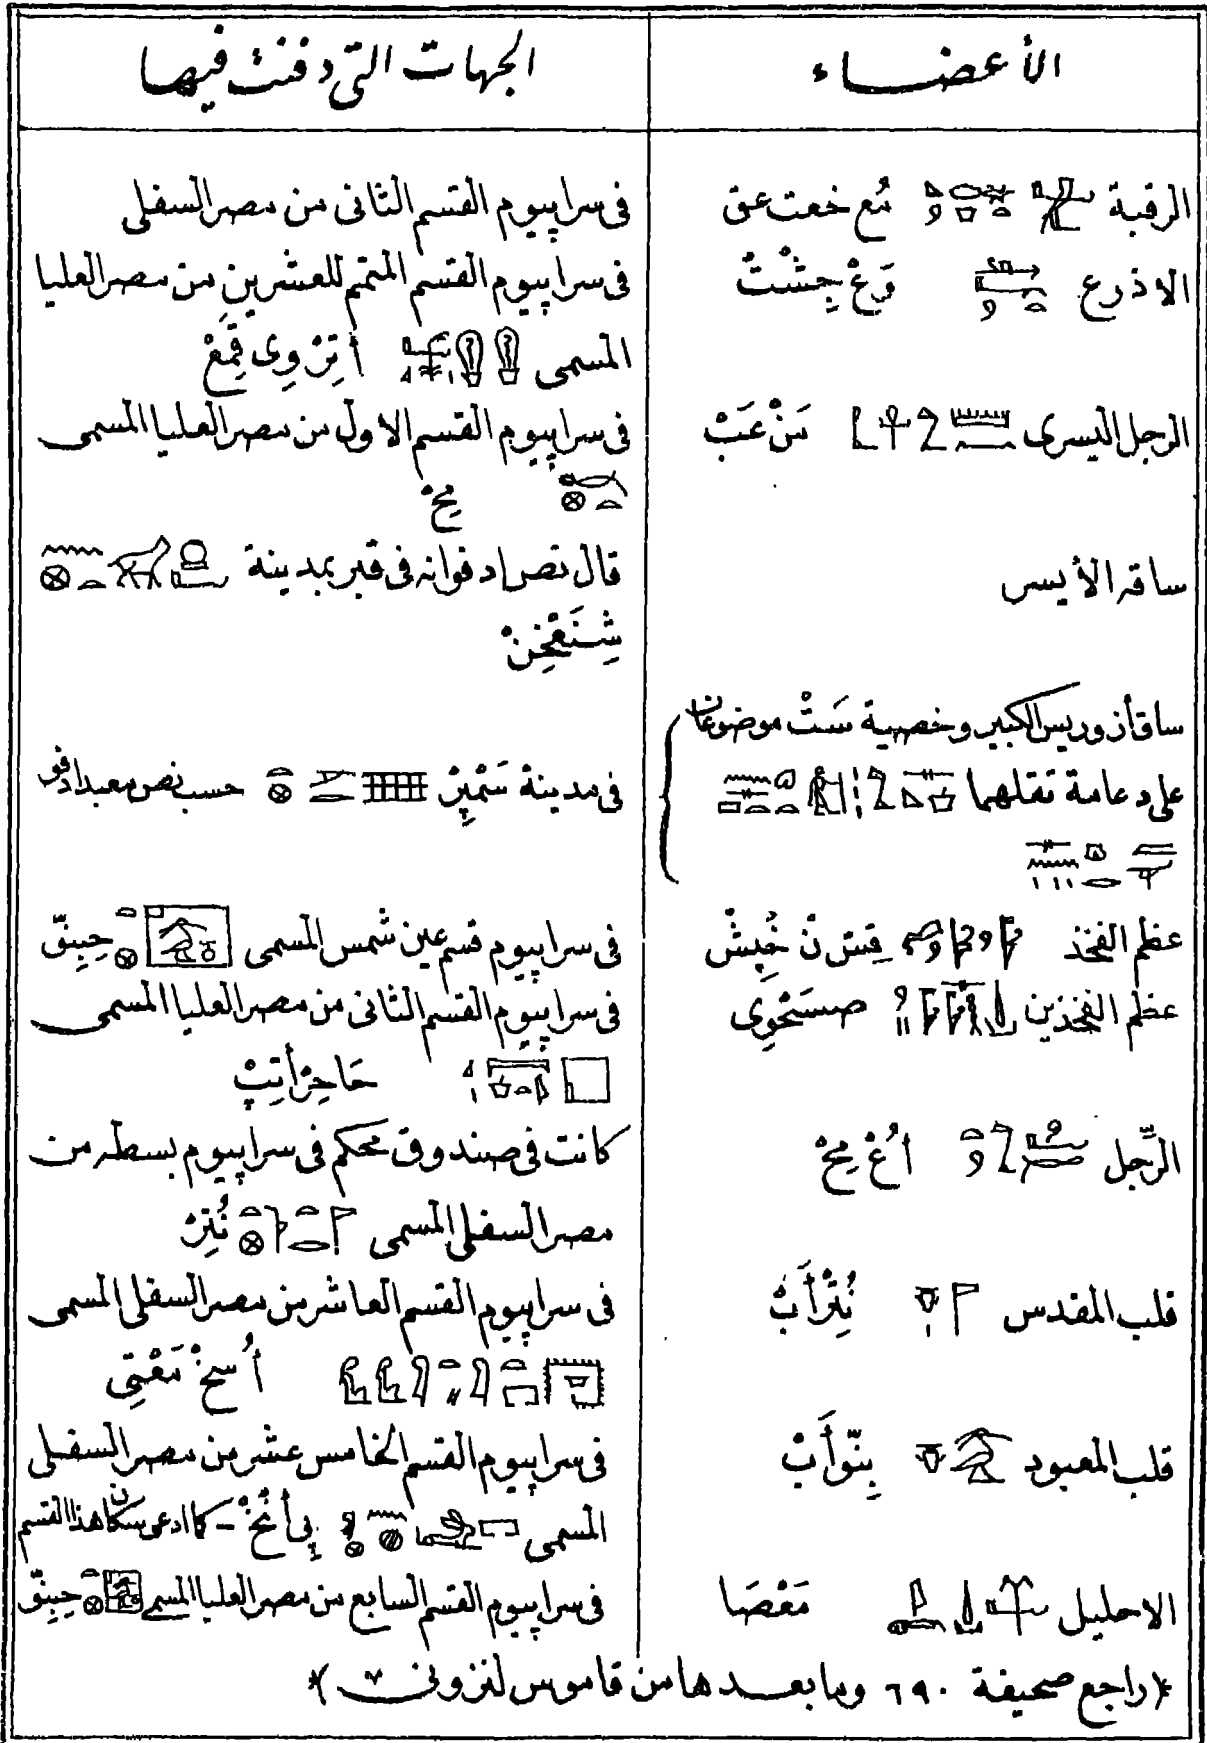 الأعضاء الجهات التى دفنت فيها
الرقبة مُع خعت عق فى سرابيوم القسم الثانى من مصر السفلى
الاذرع وَعْ جِشْتْ فى سرابيوم القسم المتمم للعشرين من مصر العليا
المسمى أَتِرْ وِى قِمَعْ
الرجل اليسرى مَنْ عَبْ فى سرابيوم القسم الاول من مصر العليا المسمى
مِخْ
ساقه الأيسر قال نصر ادفوانه فى قبر بمدينة
شِنَعْخِنْ
ساق أزوريس الكبير وخصية سَتْ موضوعان
على دعامة تقلهما فى مدينة سَمْپِرْ حسب نص معبد ادفو
عظم الفخذ قِسْ نْ خُپِشْ فى سرابيوم قسم عين شمس المسمى حِبِنّ
عظم الفخذين صسَحْوِى فى سرابيوم القسم الثانى من مصر العليا المسمى
حَاحِرْ أَتِپْ
الرِّجل أُعْ مِحْ كانت فى صندوق محكم فى سرابيوم بسطه من
مصر السفلى المسمى نُتِرْ
قلب المقدس نُتِرْأَبْ فى سرابيوم القسم العاشر من مصر السفلى المسمى
أُسِخْ مَعْتِى
قلب المعبود بِنّوأَبْ فى سرابيوم القسم الخامس عشر من مصر السفلى
المسمى پِى أُنُخْ - كما ادعى سكان هذا القسم
الاحليل مَعْصَا فى سرابيوم القسم السابع من مصر العليا المسمى حِبِنّ
(راجع صحيفة ٦٩٠ وما بعدها من قاموس لنزونى ٧)